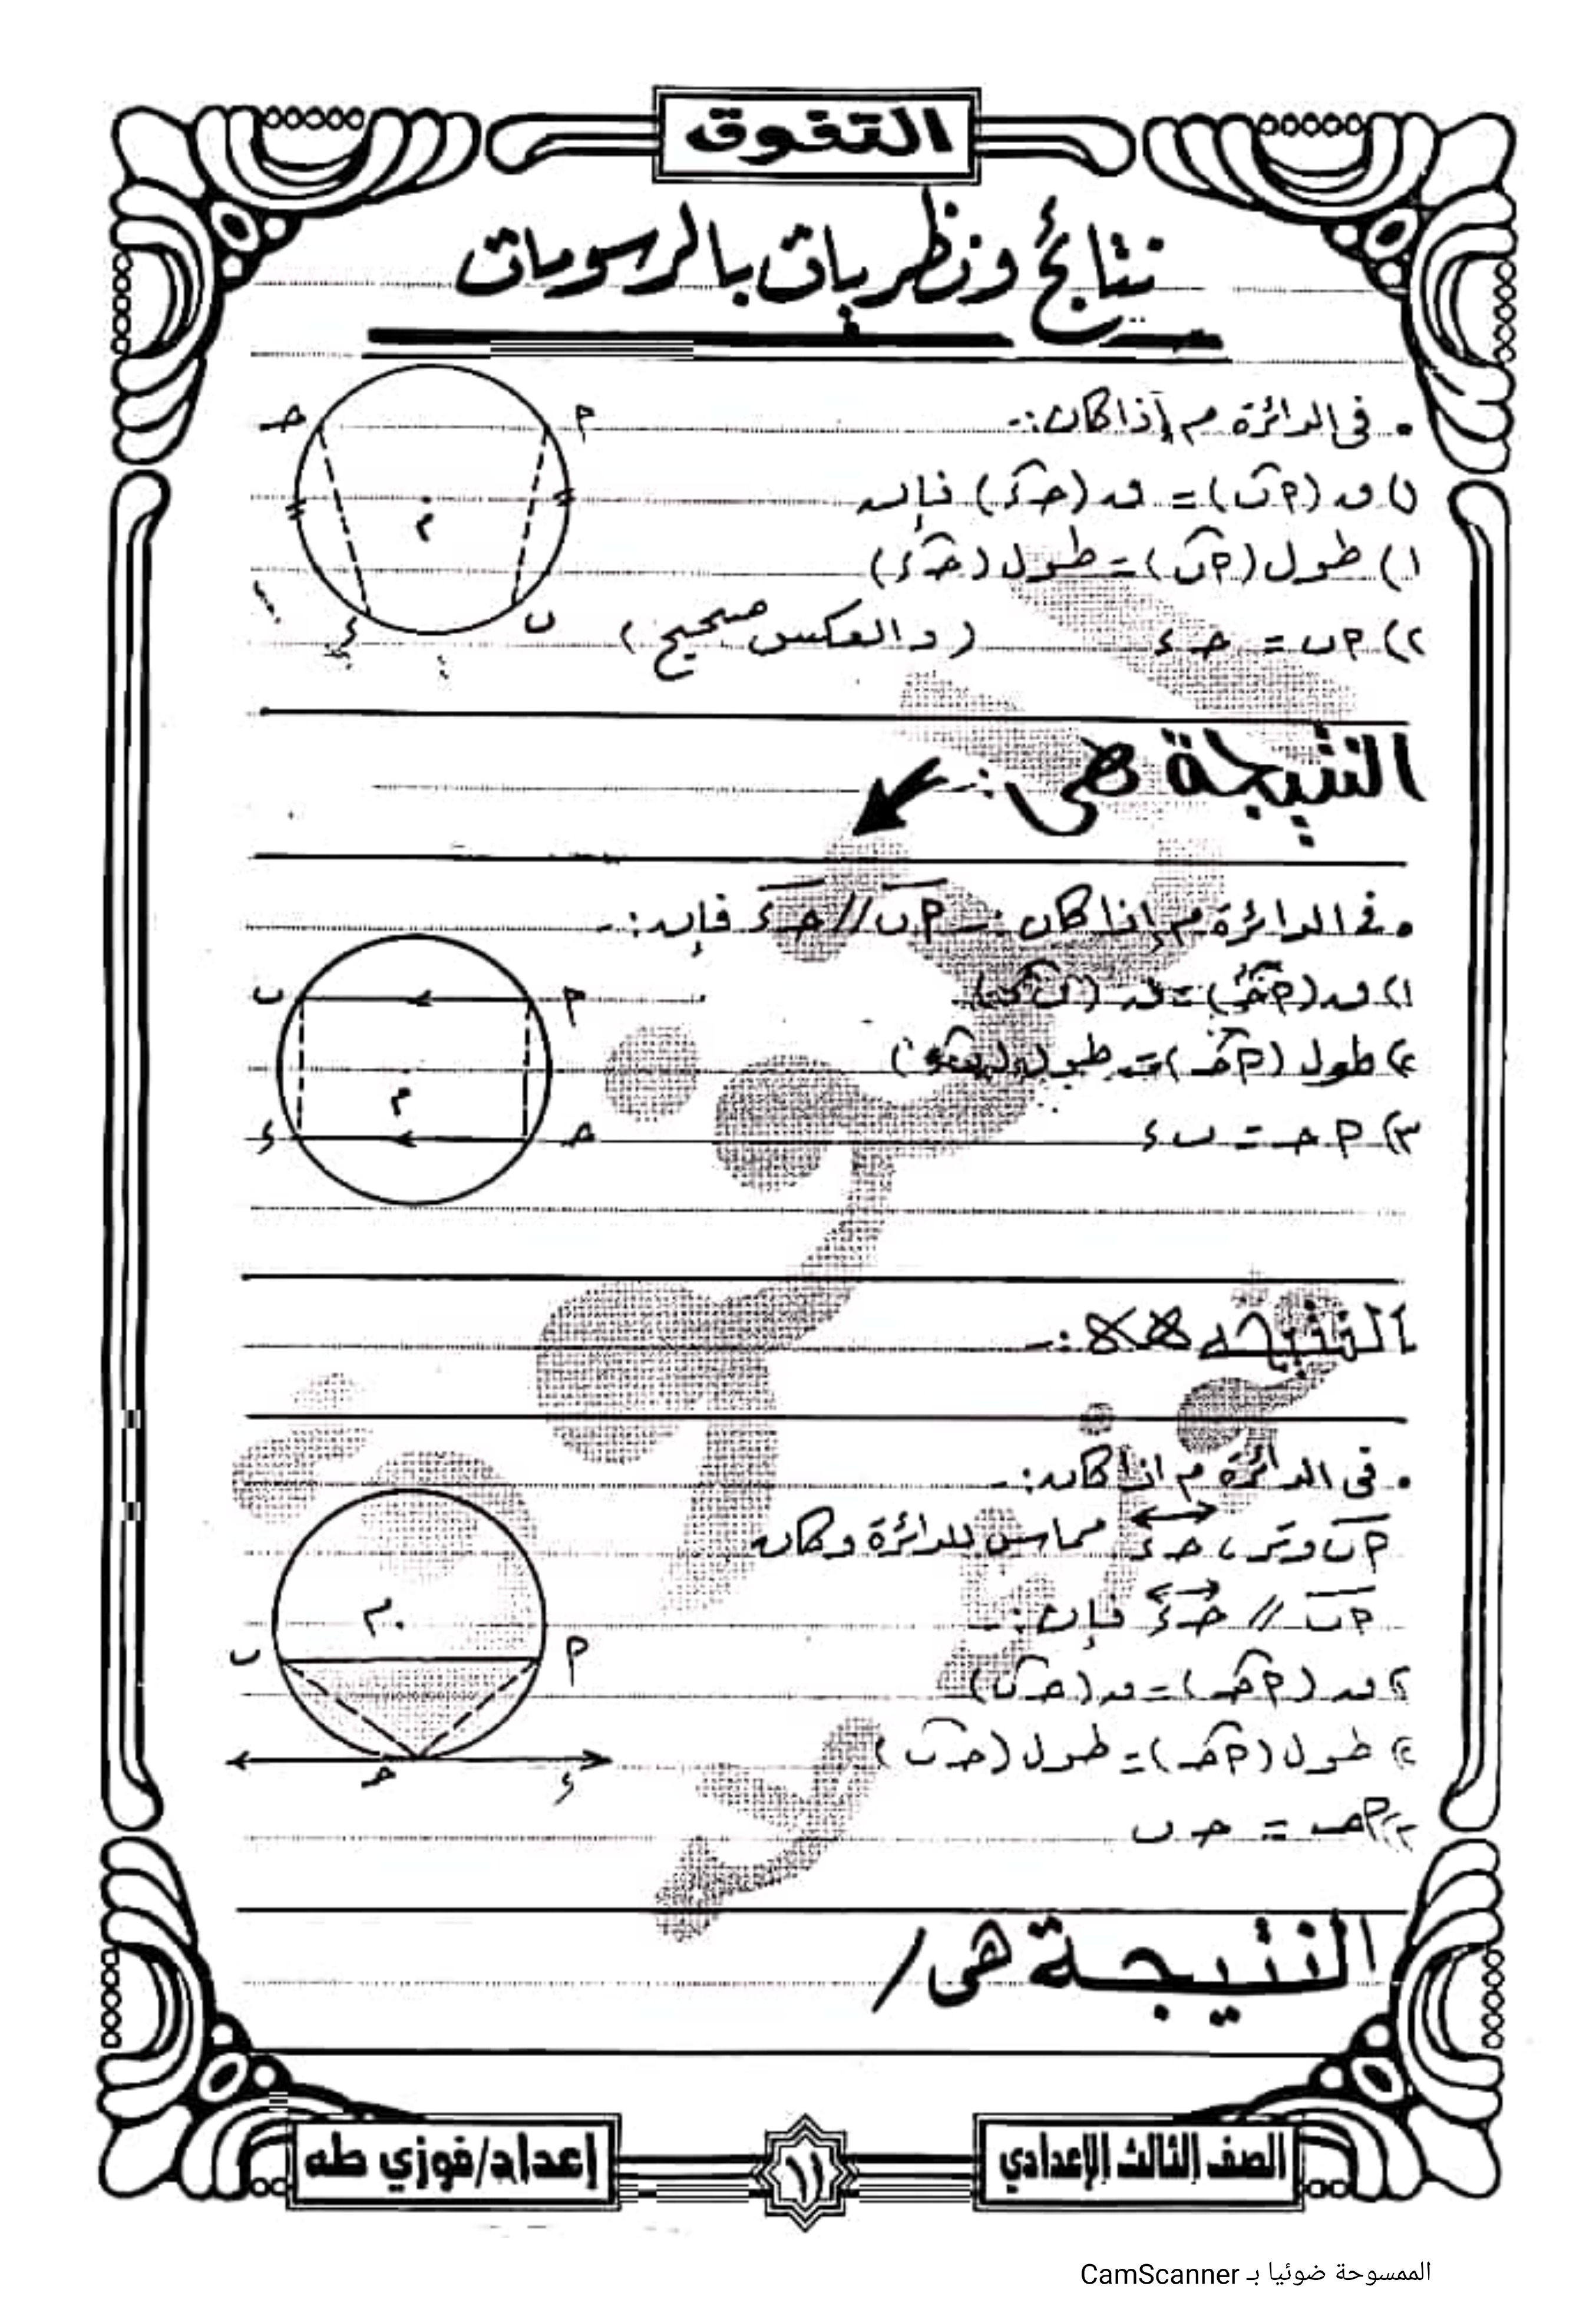 التفوق
نتائج ونظريات بالرسومات
• فى الدائرة م إذا كان :-
ـ ٨ م
١) ق (م͡ب) = ق (حـ͡ء) فإن
١) طول (م͡ب) = طول (حـ͡ء)
٢) م ب = حـ ء (والعكس صحيح)
ء ب
النتيجة هى :-
• فى الدائرة م إذا كان :- م ب // حـ ء فإن :-
ب م
١) ق (م͡حـ) = ق (ب͡ء)
٢) طول (م͡حـ) = طول (ب͡ء)
م
٣) م حـ = ب ء
ء حـ
النتيجة :-
• فى الدائرة م اذا كان :-
م ب وتر ، حـ ء مماس للدائرة وكان
م ب // حـ ء فإن :-
م
ب م
ق (م͡حـ) = ق (حـ͡ب)
٢) طول (م͡حـ) = طول (حـ͡ب)
حـ ء
٣) م حـ = حـ ب
النتيجة هى /
الصف الثالث الإعدادي
١١
إعداد/فوزي طه
الممسوحة ضوئيا بـ CamScanner